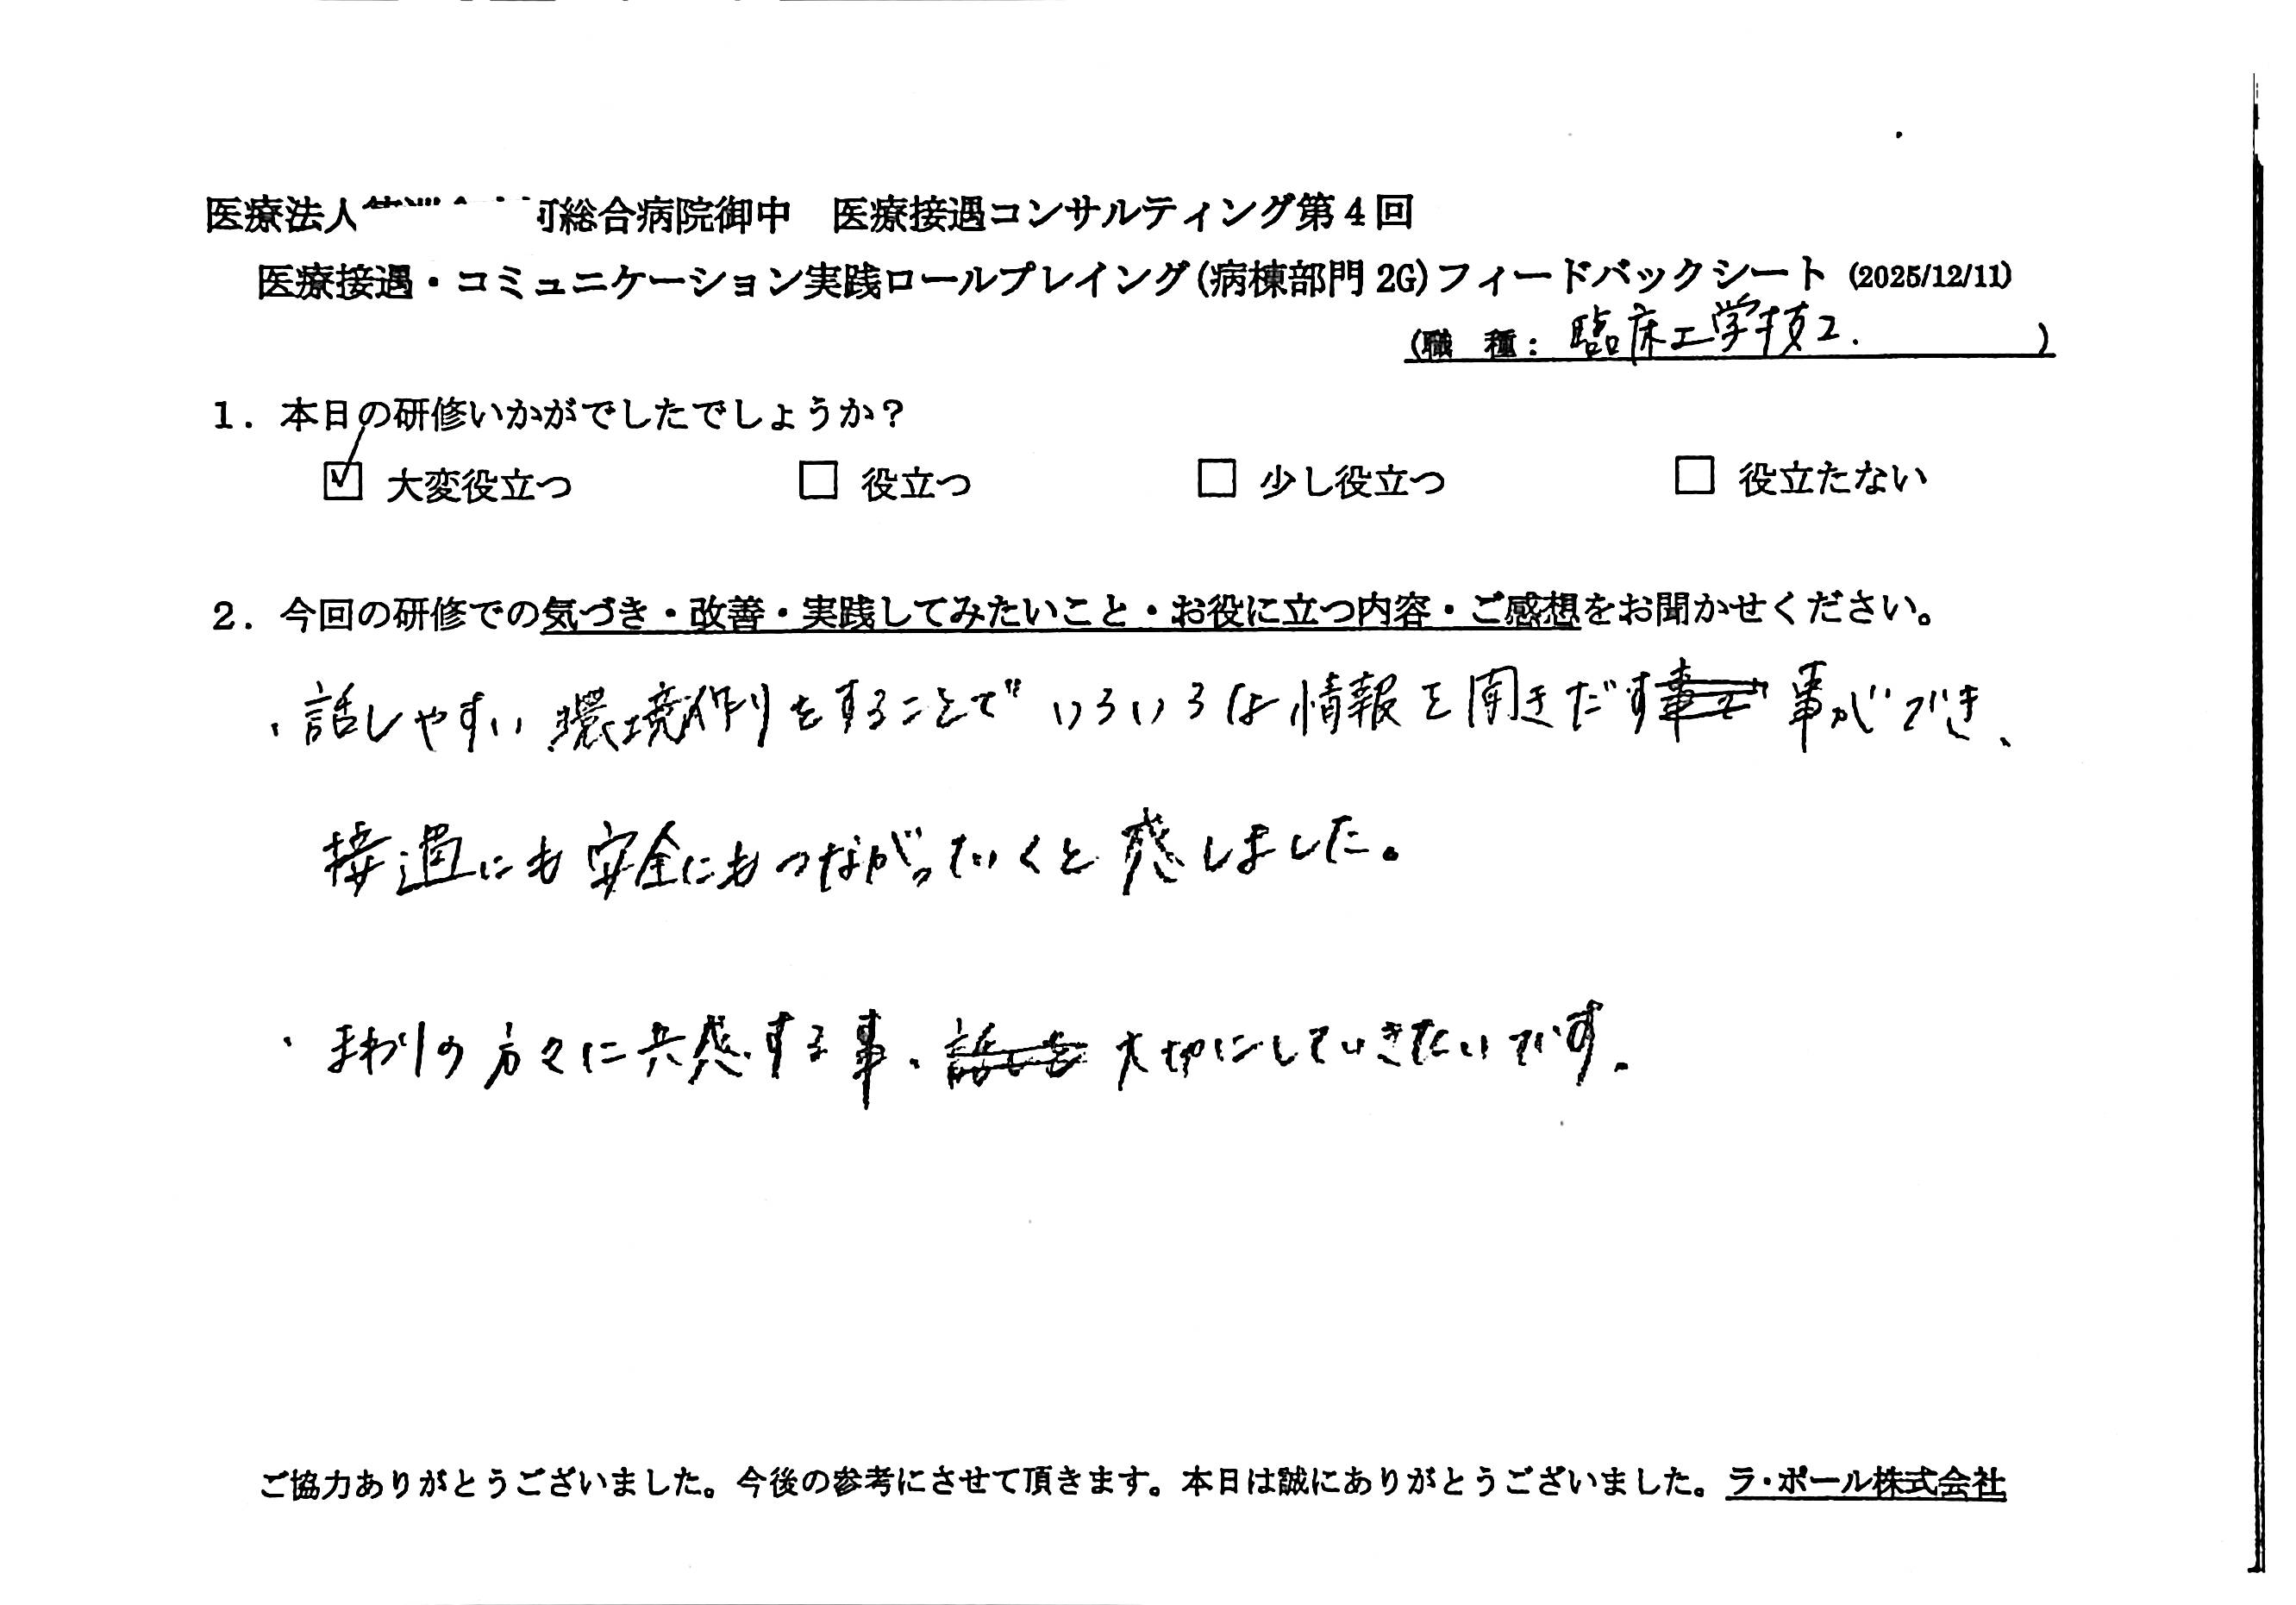 医療法人 総合病院御中　医療接遇コンサルティング第4回
医療接遇・コミュニケーション実践ロールプレイング(病棟部門 2G)フィードバックシート (2025/12/11)
(職　種： 臨床工学技士. )
1. 本日の研修いかがでしたでしょうか？
☑ 大変役立つ　□ 役立つ　□ 少し役立つ　□ 役立たない
2. 今回の研修での気づき・改善・実践してみたいこと・お役に立つ内容・ご感想をお聞かせください。
・話しやすい環境作りをすることでいろいろな情報を聞きだす事ができ、
接遇にも安全にもつながっていくと感じました。
・まわりの方々に共感する事、大切にしていきたいです。
ご協力ありがとうございました。今後の参考にさせて頂きます。本日は誠にありがとうございました。ラ・ポール株式会社